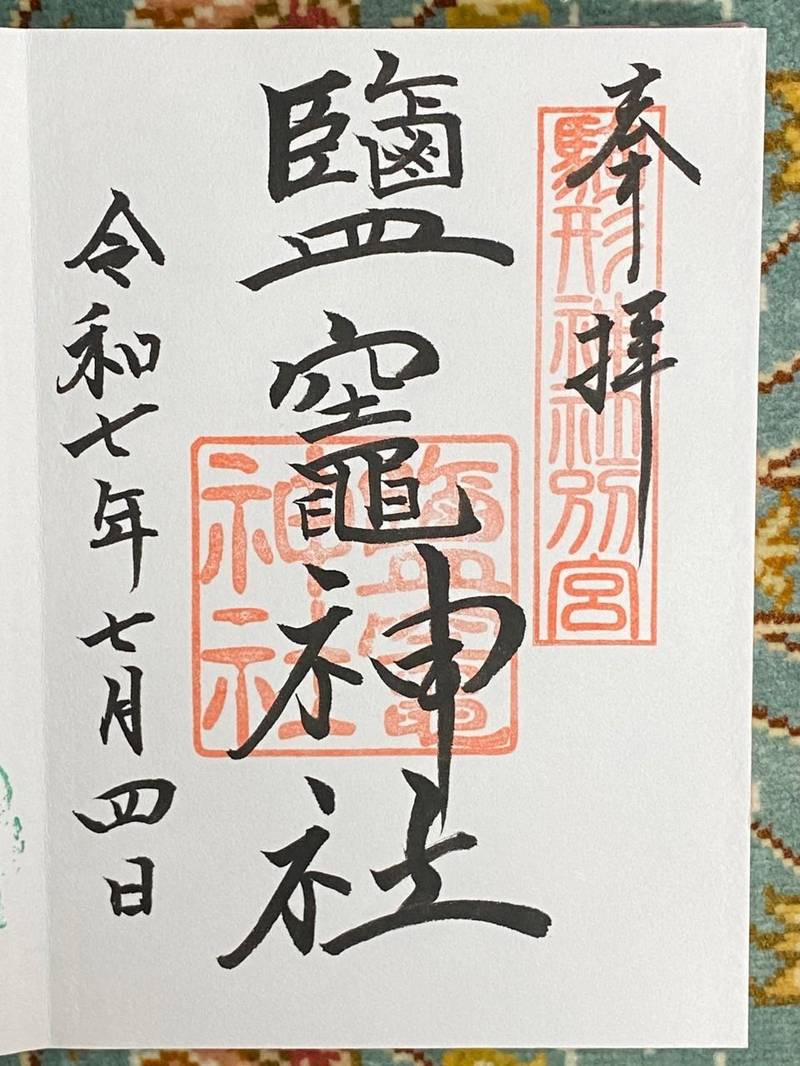 奉拝
駒形神社別宮
鹽竈神社
鹽竈神社
令和七年七月四日